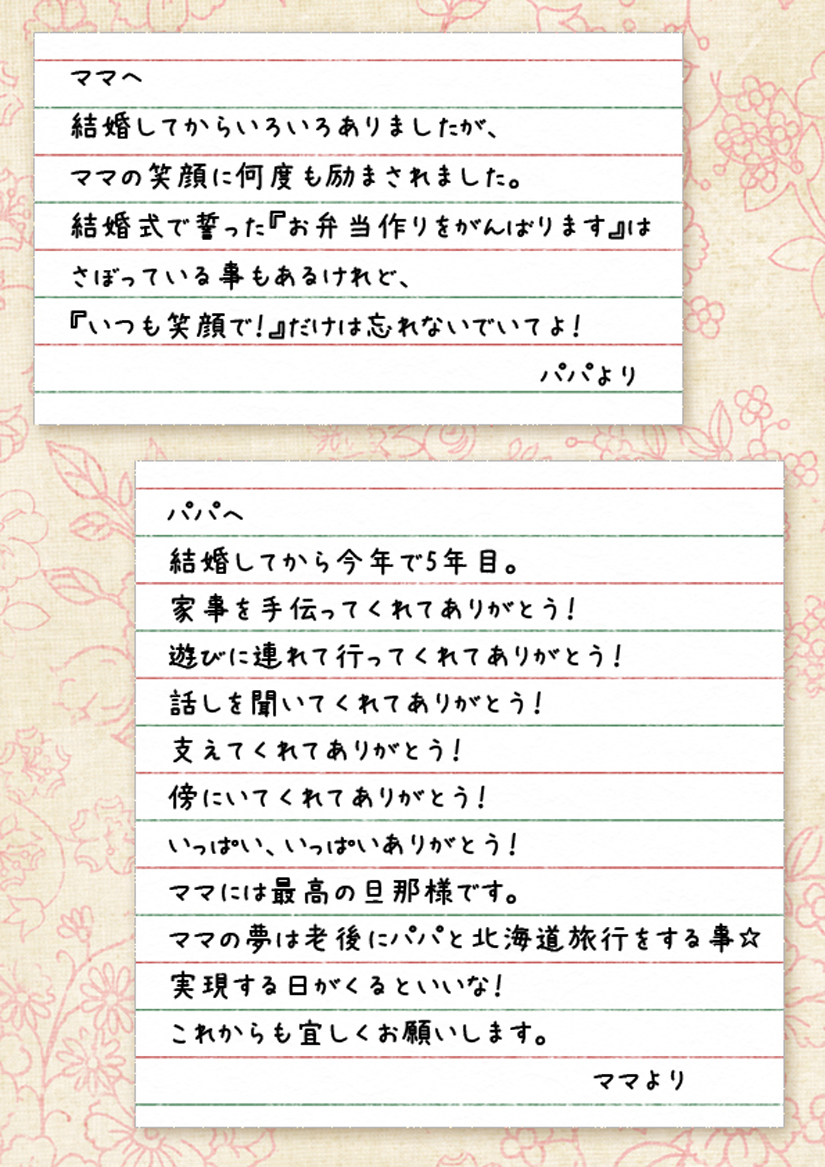 ママへ
結婚してからいろいろありましたが、
ママの笑顔に何度も励まされました。
結婚式で誓った『お弁当作りをがんばります』は
さぼっている事もあるけれど、
『いつも笑顔で!』だけは忘れないでいてよ!
パパより
パパへ
結婚してから今年で5年目。
家事を手伝ってくれてありがとう!
遊びに連れて行ってくれてありがとう!
話しを聞いてくれてありがとう!
支えてくれてありがとう!
傍にいてくれてありがとう!
いっぱい、いっぱいありがとう!
ママには最高の旦那様です。
ママの夢は老後にパパと北海道旅行をする事☆
実現する日がくるといいな!
これからも宜しくお願いします。
ママより